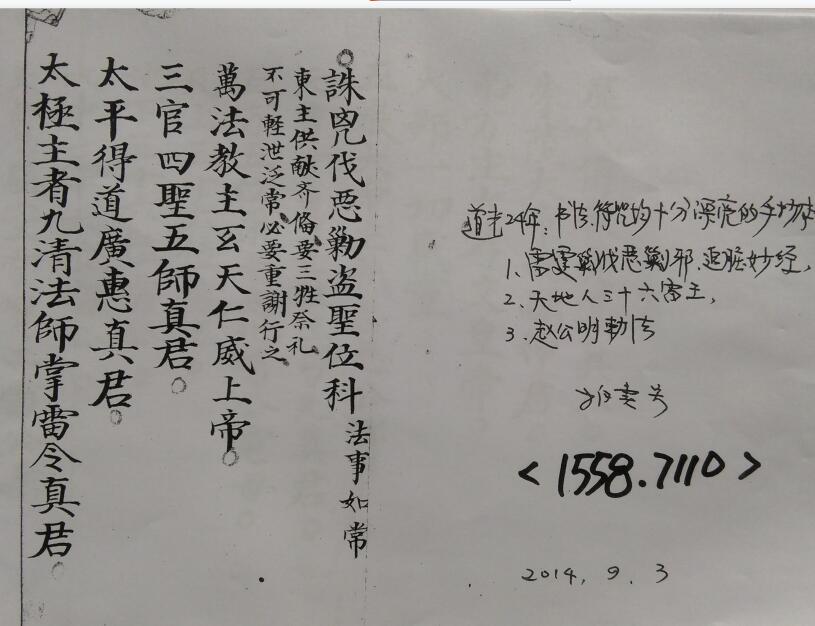 誅兇伐惡勦盜聖位科 法事如常
東主供献齐俻要三牲祭礼
不可輕泄泛常必要重謝行之
萬法教主玄天仁威上帝
三官四聖五師真君
太平得道廣惠真君
太極主者九清法師掌雷令真君
道光24年：书法.符咒均十分漂亮的手抄本
1、雷霆 伐恶剿邪. 妙经，
2、天地人三十六 主，
3、赵公明勅法
拍卖号
<1558.7110>
2014.9.3